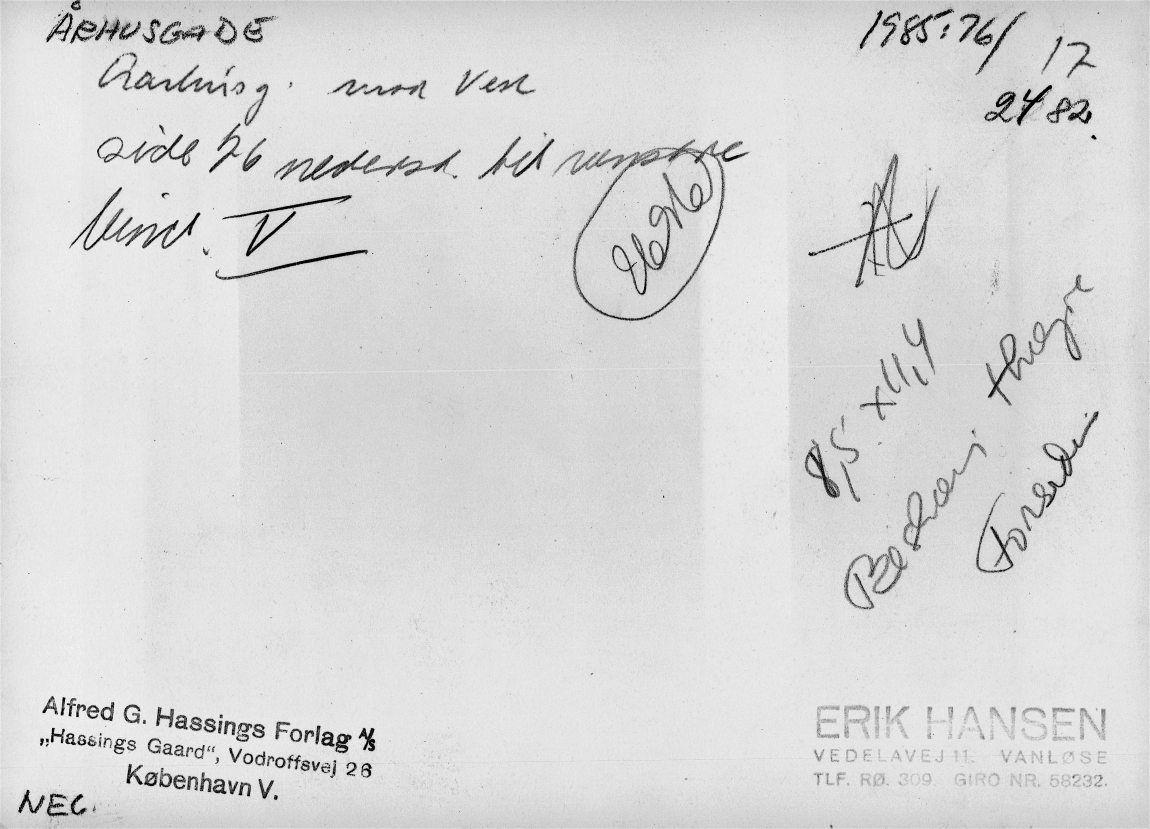 ÅRHUSGADE
Aarhusg. mod Vest
side 76 nedersd. til venstre
bind. V
1985:76/17
2482.
8,5 x 11,4
Beskæres
Forsiden
Alfred G. Hassings Forlag A/S
„Hassings Gaard“, Vodroffsvej 26
København V.
NEG.
ERIK HANSEN
VEDELAVEJ 11. VANLØSE
TLF. RØ. 309. GIRO NR. 58232.